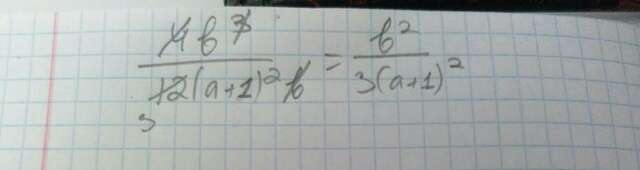 4b³ / 12(a+1)²b = b² / 3(a+1)²
3